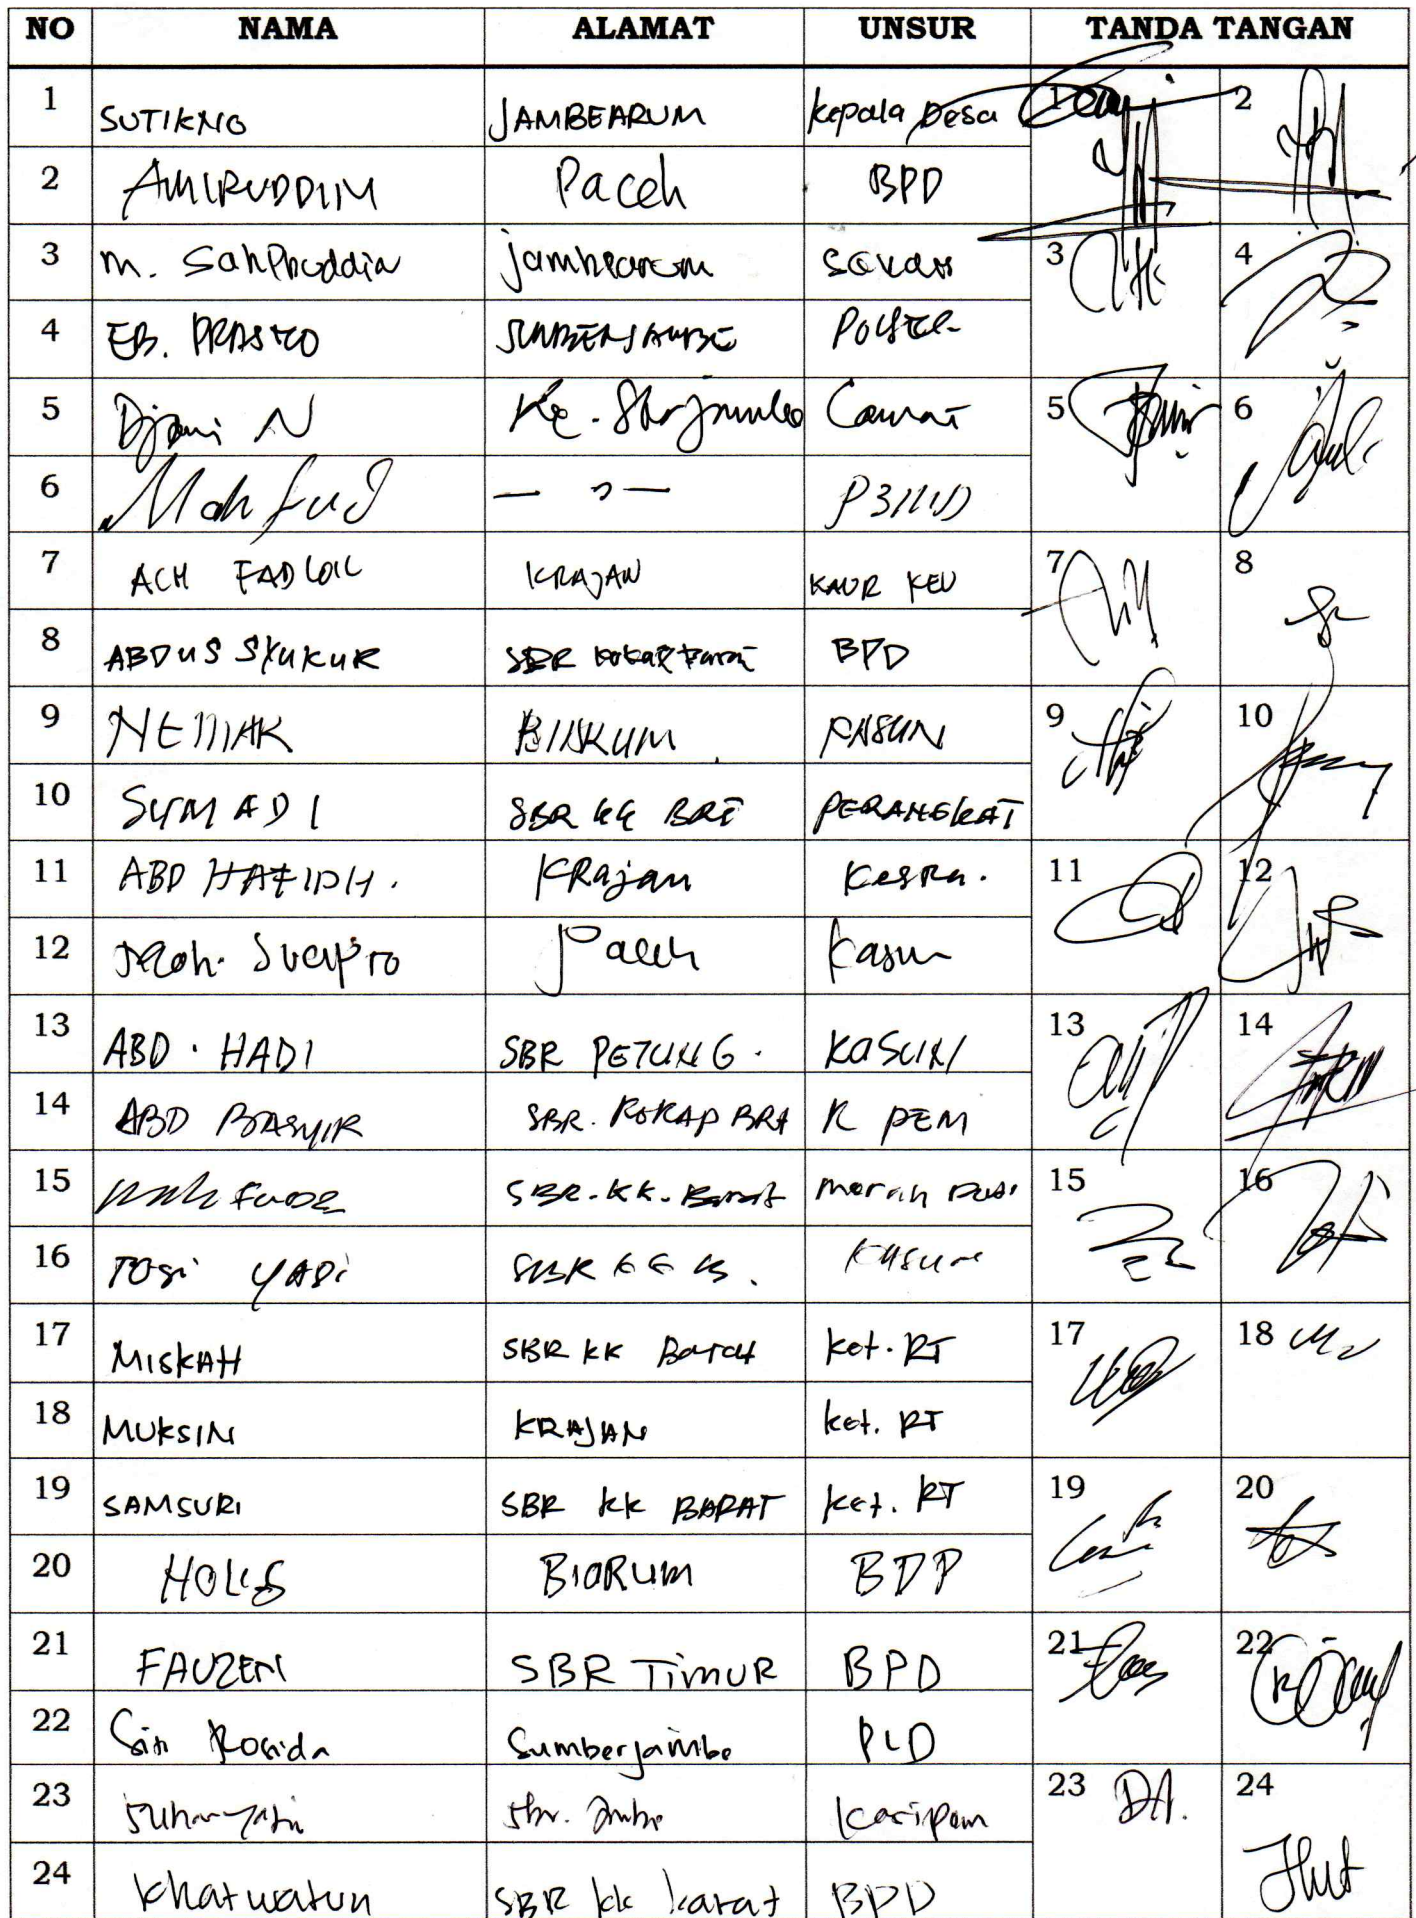 NO NAMA ALAMAT UNSUR TANDA TANGAN
1 SUTIKNO JAMBEARUM Kepala Desa 1 2
2 AMIRUDDIN Paceh BPD
3 M. Sahphuddin jambearum 3 4
4 EB. PRASTO SUMBERJAMBE
5 Djani N Kec. Camat 5 6
6 Mahfud — " —
7 ACH FADLOIL KRAJAN KAUR KEU 7 8
8 ABDUS SYUKUR SBR BPD
9 KASUN 9 10
10 SUMADI SBR KK BRT PERANGKAT
11 ABD HAFIDH. KRajan Kesra. 11 12
12 Moh. Sucipto Paceh Kasun
13 ABD. HADI SBR PETUNG. KASUN 13 14
14 ABD BASYIR SBR. KOKAP BRT K PEM
15 SBR. KK. Barat 15 16
16 YADi Kasun
17 MISKAH SBR KK Barat Ket. RT 17 18
18 MUKSIN KRAJAN ket. RT
19 SAMSURI SBR KK BARAT ket. RT 19 20
20 HOLIS BIORUM BDP
21 FAUZEN SBR TimUR BPD 21 22
22 Siti Rosida Sumberjambe PLD
23 Suharyatin Sbr. Jambe 23 DA. 24
24 Khatwatun SBR kk karat BPD